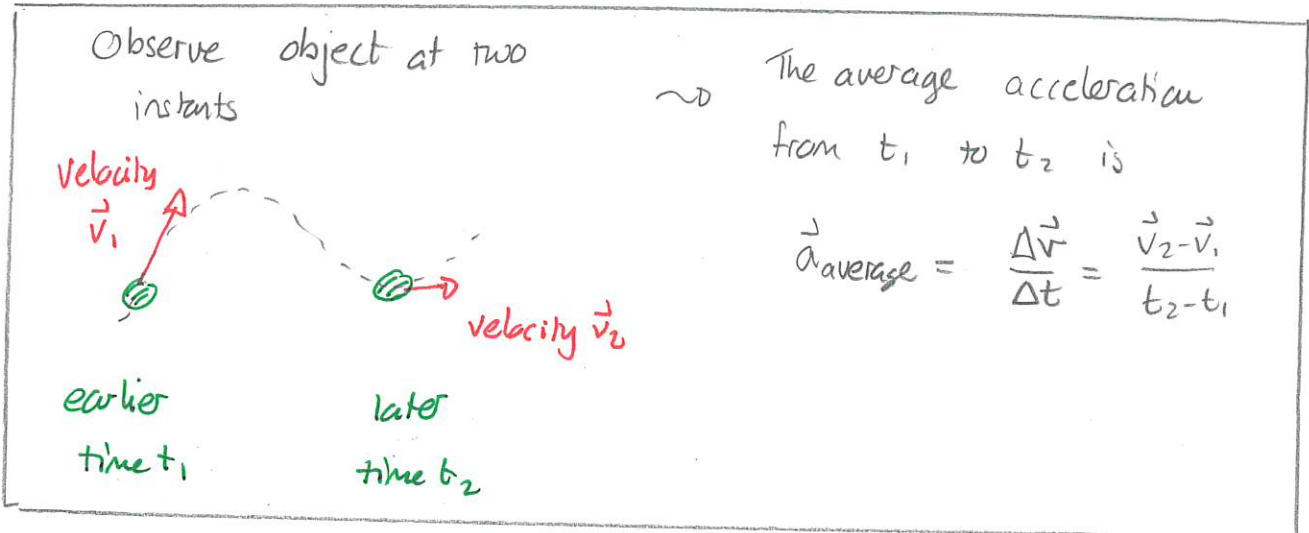 Observe object at two
instants
velocity
v⃗₁
velocity v⃗₂
earlier
time t₁
later
time t₂
~> The average acceleration
from t₁ to t₂ is
a⃗average = Δv⃗/Δt = (v⃗₂-v⃗₁)/(t₂-t₁)